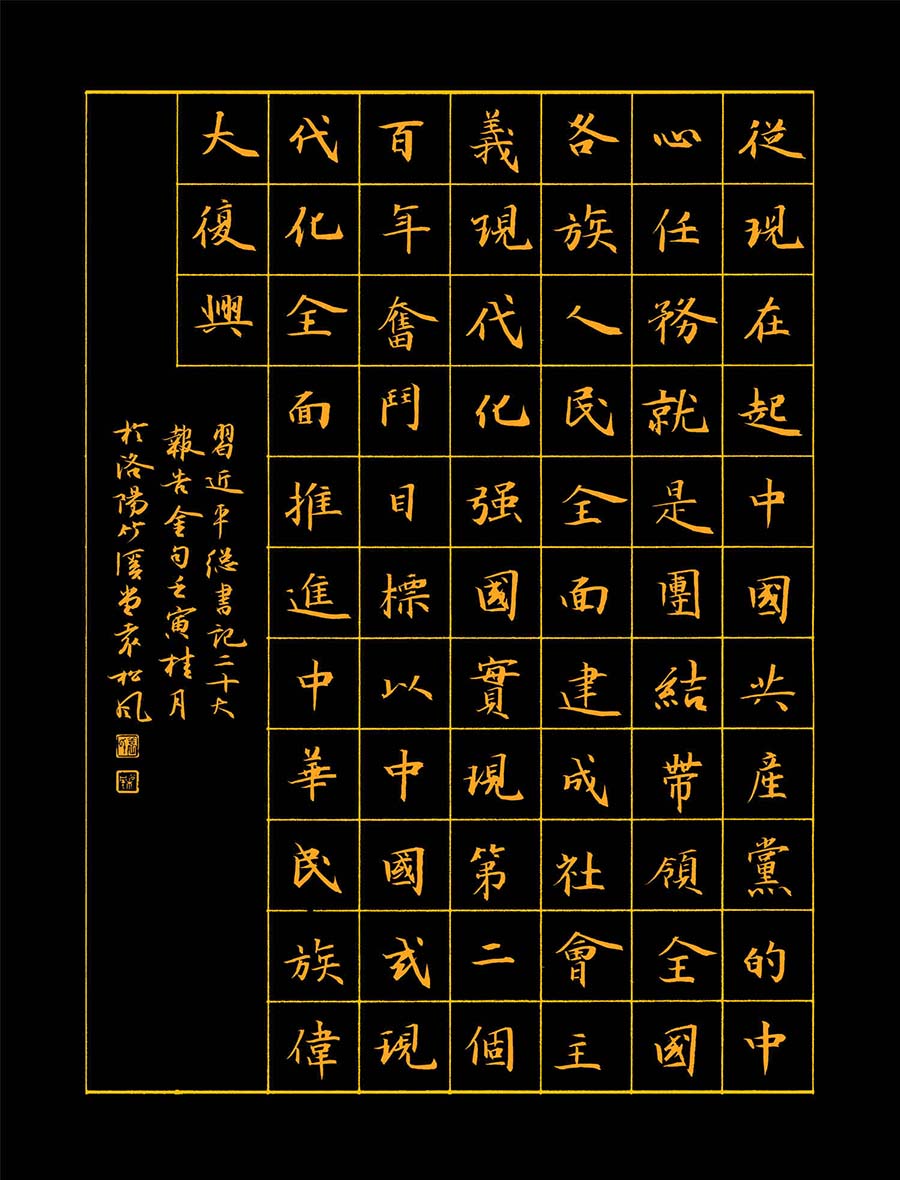 從現在起中國共產黨的中
心任務就是團結帶領全國
各族人民全面建成社會主
義現代化强國實現第二個
百年奮鬥目標以中國式現
代化全面推進中華民族偉
大復興
習近平總書記二十大
報告金句壬寅桂月
於洛陽竹溪堂袁松風